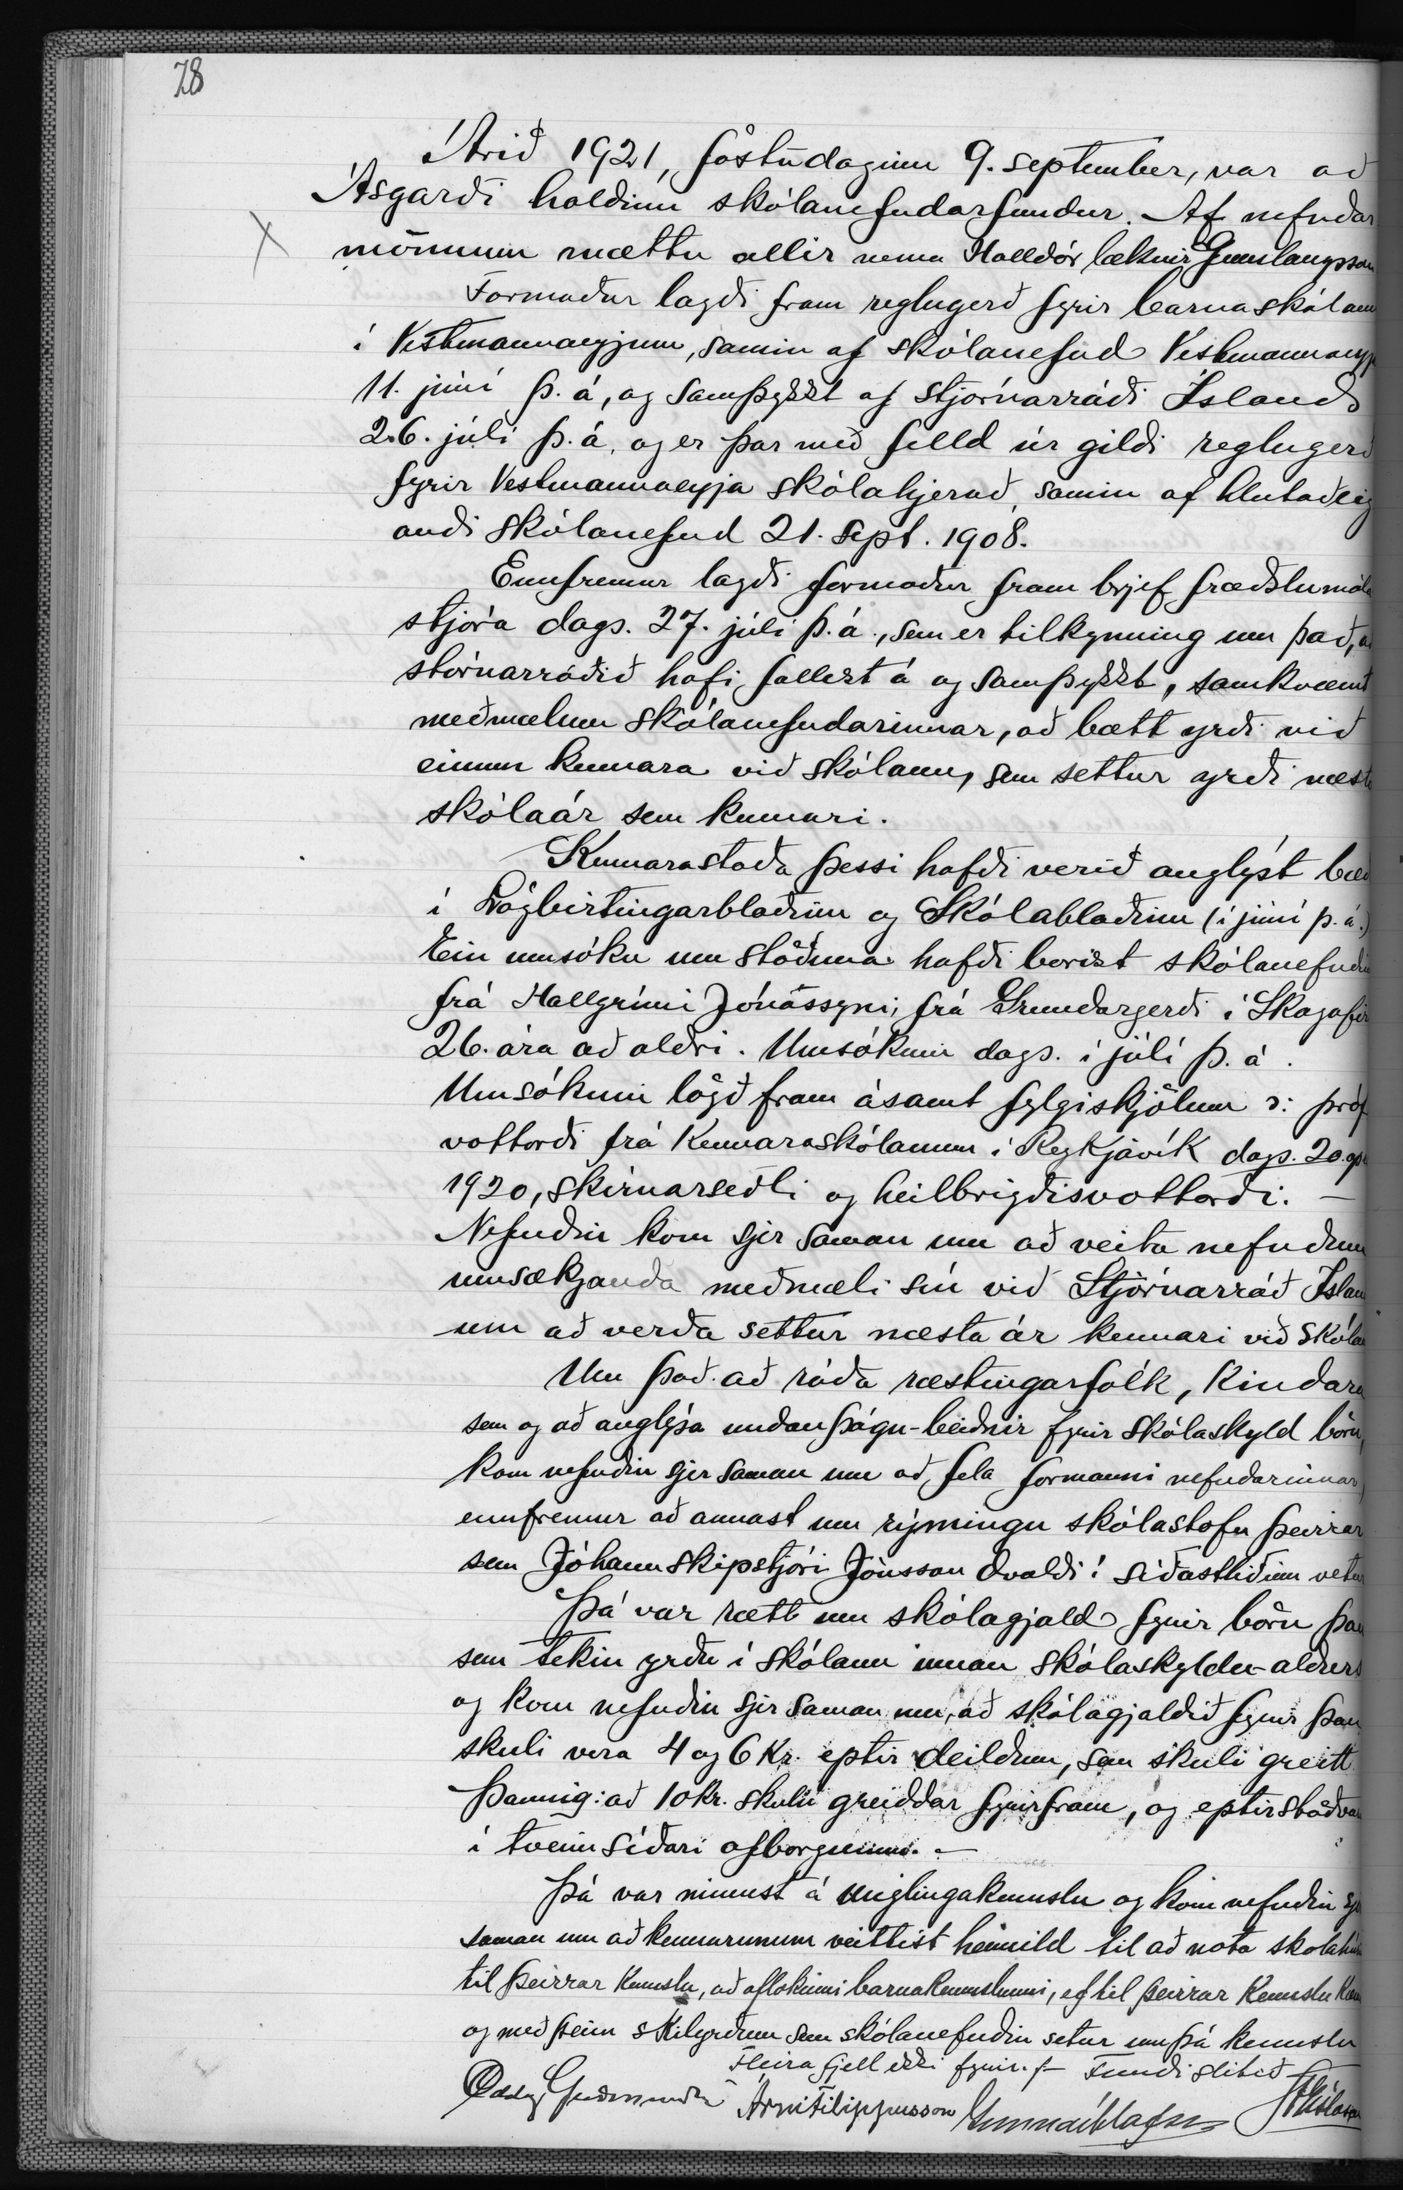 78
Árið 1921, föstudaginn 9. september, var að
Ásgarði haldinn skólanefndarfundur. Af nefndar
mönnum mættu allir nema Halldór læknir Gunnlaugsson
Formaður lagði fram reglugerð fyrir barnaskólann
í Vestmannaeyjum, samin af skólanefnd Vestmannaeyja
11. júní þ. á, og samþykkt af stjórnarráði Íslands
26. júlí þ. á. og er þar með felld úr gildi reglugerð
fyrir Vestmannaeyja skólahjerað, samin af hlutaðeig
andi skólanefnd 21. sept. 1908.
Ennfremur lagði formaður fram brjef fræðslumála
stjóra dags. 27. júlí þ. á., sem er tilkynning um það, að
stórnarráðið hafi fallist á og samþykkt, samkvæmt
meðmælum skólanefndarinnar, að bætt yrði við
einum kennara við skólann, sem settur yrði næsta
skólaár sem kennari.
Kennarastaða þessi hafði verið auglýst bæði
í Lögbirtingarblaðinu og Skólablaðinu (í júní þ. á.)
Ein umsókn um stöðuna hafði borist skólanefndin
frá Hallgrími Jónássyni, frá Grundargerði í Skagafir
26. ára að aldri. Umsóknin dags. í júlí þ. á.
Umsóknin lögð fram ásamt fylgiskjölum ɔ: próf
vottorði frá Kennaraskólanum í Reykjavík dags. 20. apr
1920, skírnarseðli og heilbrigðisvottorði. —
Nefndin kom sjer saman um að veita nefndum
umsækjanda meðmæli sín við Stjórnarráð Íslan
um að verða settur næsta ár kennari við skólan
Um það að ráða ræstingarfólk, kindara
sem og að auglýsa undanþágu-beiðnir fyrir skólaskyld börn,
kom nefndin sjer saman um að fela formanni nefndarinnar,
ennfremur að annast um rýmingu skólastofu þeirrar
sem Jóhann skipstjóri Jónsson dvaldi í síðastliðinn vetur
Þá var rætt um skólagjald fyrir börn þau
sem tekin yrðu í skólann innan skólaskyldu-aldurs
og kom nefndin sjer saman um, að skólagjaldið fyrir þau
skuli vera 4 og 6 kr. eptir deildum, sem skuli greitt
þannig: að 10 kr. skulu greiddar fyrirfram, og eptirstöðvar
í tveim síðari afborgunum. —
Þá var minnst á unglingakennslu og kom nefndin sjer
saman um að kennurunum veittist heimild til að nota skólahús
til þeirrar kennslu, að aflokinni barnakennslunni, ef til þeirrar kennslu kæm
og með þeim skilyrðum sem skólanefndin setur um þá kennslu
Fleira fjell ekki fyrir. — Fundi slitið —
Oddg Guðmundss Árni Filippusson Gunnar Ólafsson